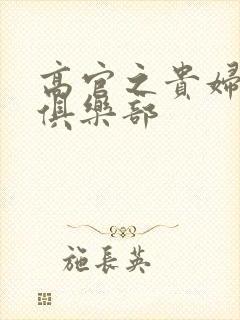 高官之貴婦
俱樂部
施長英